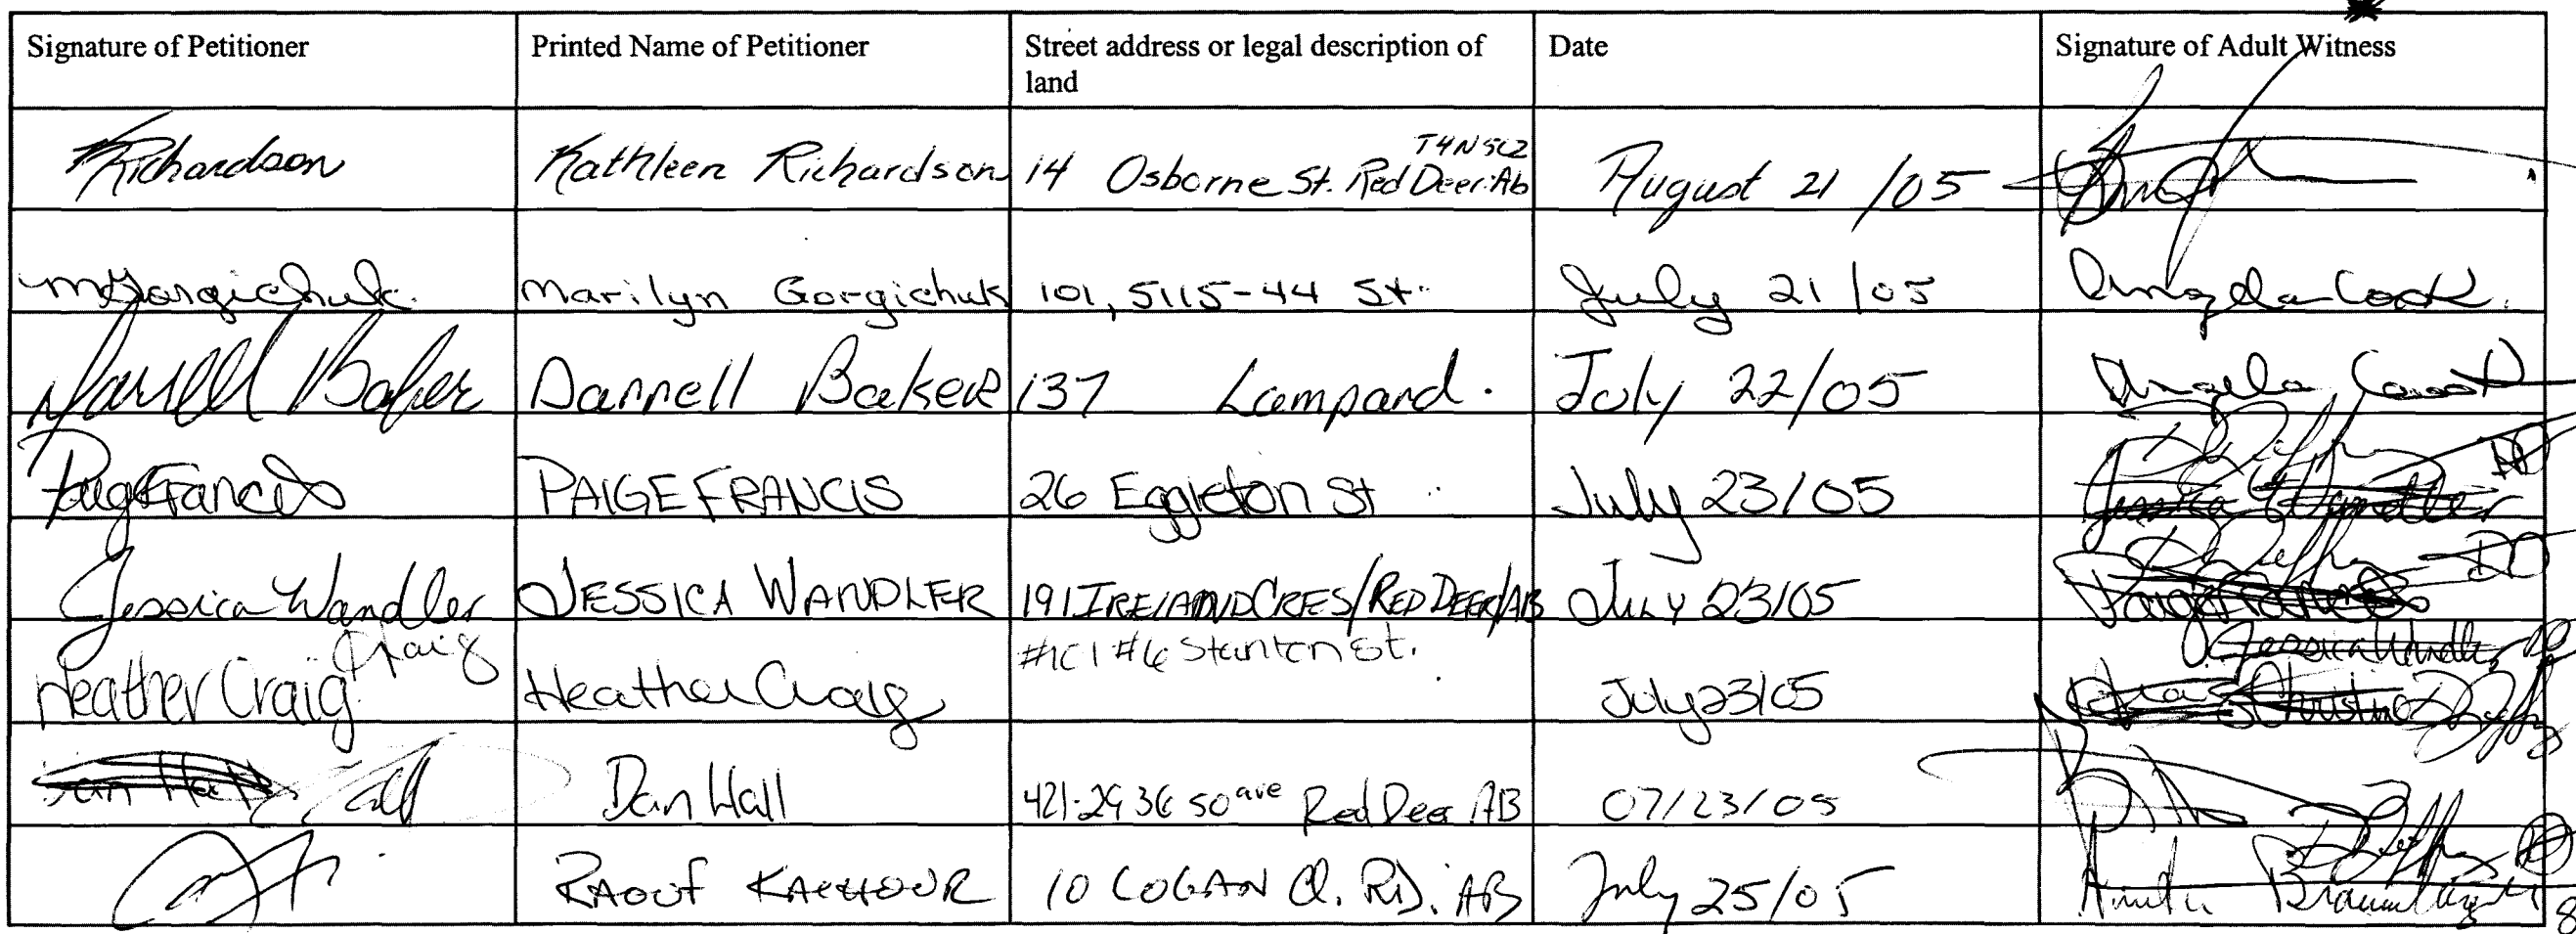 Signature of Petitioner Printed Name of Petitioner Street address or legal description of land Date Signature of Adult Witness
KRichardson Kathleen Richardson 14 Osborne St. Red Deer. Ab T4N 5C2 August 21 /05
MGorgichuk Marilyn Gorgichuk 101, 5115-44 St. July 21/05 Angela Cook
Darrell Baker Darrell Baker 137 Lampard. July 22/05 Angela Cook
Paige Francis PAIGE FRANCIS 26 Eggleton St July 23/05 Jessica Wandler
Jessica Wandler JESSICA WANDLER 191 IRELAND CRES/RED DEER/AB July 23/05 Paige Francis
Heather Craig Craig Heather Craig #101 #6 Stanton St. July 23/05 Jessica Wandler Christine
Dan Hall Dan Hall 421-2936 50 ave Red Deer AB 07/23/05
RAOUF 10 COGAN Cl. RD. AB July 25/05 Anita